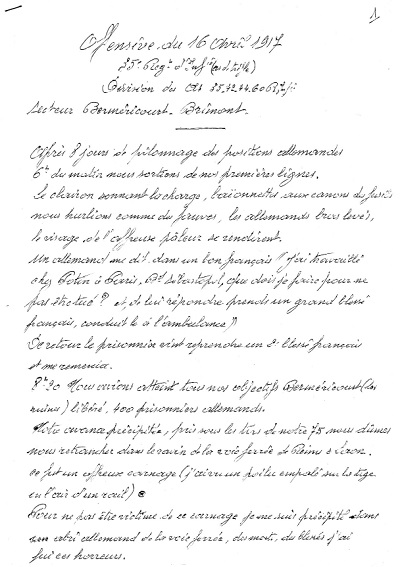 1
Offensive du 16 Avril 1917
35e Regt d'Inf
Division des 35.42.44.60 R.I.
Secteur Berméricourt - Brimont.
Après 8 jours de pilonnage des positions allemandes
6h du matin nous sortions de nos premières lignes.
Le clairon sonnant la charge, baïonnettes aux canons des fusils
nous hurlions comme des fauves, les allemands bras levés,
le visage de l'affreuse pâleur se rendirent.
Un allemand me dit dans un bon français "j'ai travaillé
chez Potin à Paris, Bd Sébastopol, que dois-je faire pour ne
pas être tué? et de lui répondre prends un grand blessé
français, conduit le à l'ambulance"
De retour le prisonnier vint reprendre un 2e blessé français
et me remercia.
8h30 Nous avions atteint tous nos objectifs Berméricourt (des
ruines) libéré, 400 prisonniers allemands.
Notre avance précipitée, pris sous les tirs de notre 75 nous dûmes
nous retrancher dans le ravin de la voie ferrée de Reims à Laon.
ce fut un affreux carnage (j'ai vu un poilu empalé sur la tige
en l'air d'un rail)
Pour ne pas être victime de ce carnage je me suis précipité dans
un abri allemand de la voie ferrée, des morts, des blessés j'ai
fui ces horreurs.